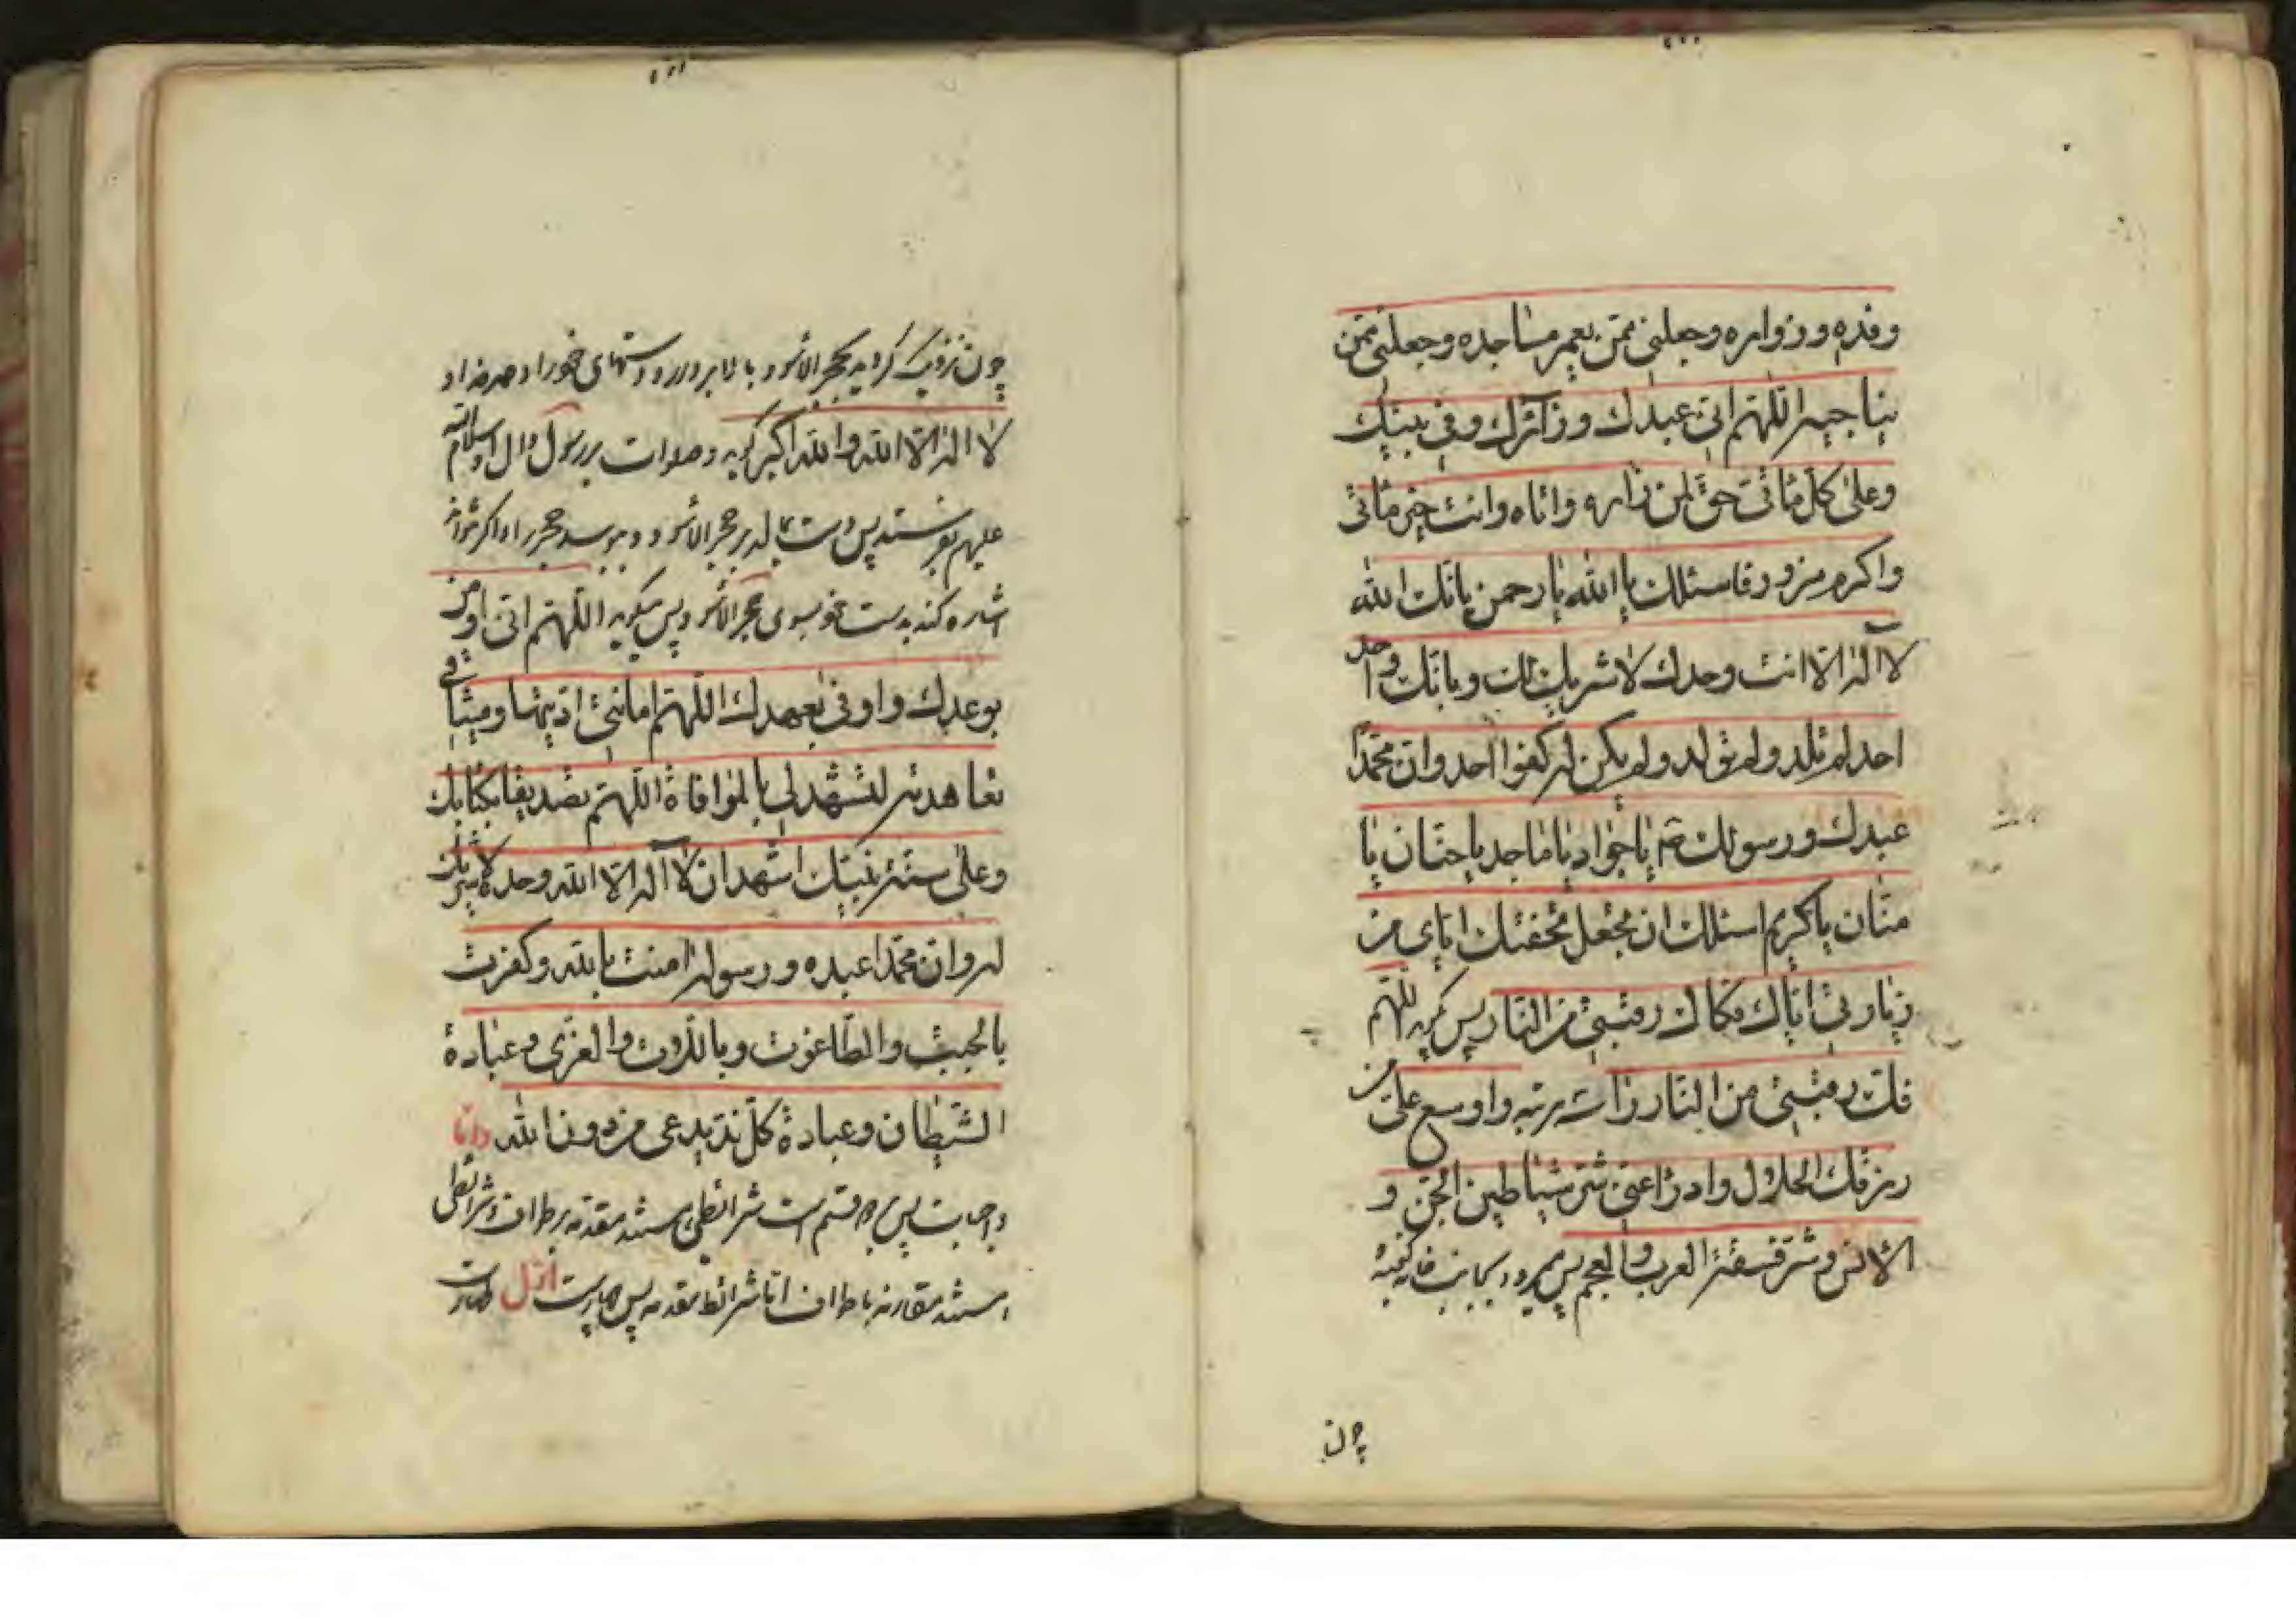 وفده و زواره وجعلنی ممّن یعمر مساجده وجعلنی ممّن
یناجیه اللّهمّ انّی عبدك و زآئرك وفی بیتك
وعلی کلّ مأتیّ حقّ لمن زاره واتاه وانت خیر مأتی
واکرم مزور فاسئلك یا الله یا رحمن بانّك الله
لا اله الّا انت وحدك لا شریك لك وبانّك واحد
احد لم تلد ولم تولد ولم یکن له کفوا احد وانّ محمّدا
عبدك ورسولك یا جواد یا ماجد یا حنّان یا
منّان یا کریم اسئلك ان تجعل تحفتك ایّای من
زیارتی ایّاك فکاك رقبتی من النّار پس کوید اللّهمّ
فكّ رقبتی من النّار مرتبه واوسع علیّ من
رزقك الحلال وادرأ عنّی شرّ شیاطین الجنّ و
الانس وشرّ فسقة العرب والعجم پس میرود بجانب خانه کعبه
چون
چون نزدیک کردید بحجر الاسود بالا بردارد دستهای خود را و
لا اله الّا الله والله اکبر کوید و صلوات بر رسول وال او
علیهم بفرستد پس دست بمالد بر حجر الاسود و ببوسد حجر را و اکر نتواند
اشاره کند بدست خود بسوی حجر الاسود پس میکوید اللّهمّ انّی اومن
بوعدك واوفی بعهدك اللّهمّ امانتی ادّیتها ومیثاقی
تعاهدته لتشهد لی بالموافاة اللّهمّ تصدیقا بکتابك
وعلی سنّة نبیّك اشهد ان لا اله الّا الله وحده لا شریك
له وانّ محمّدا عبده ورسوله امنت بالله وکفرت
بالجبت والطّاغوت وباللّات والعزّی وعبادة
الشّیطان وعبادة کلّ ندّ یدعی من دون الله وامّا
واجبات پس بر قسم است شرائطی هستند مقدمه بر طواف و شرائطی
هستند مقارنه با طواف امّا شرائط مقدمه پس چهار است اوّل طهارت